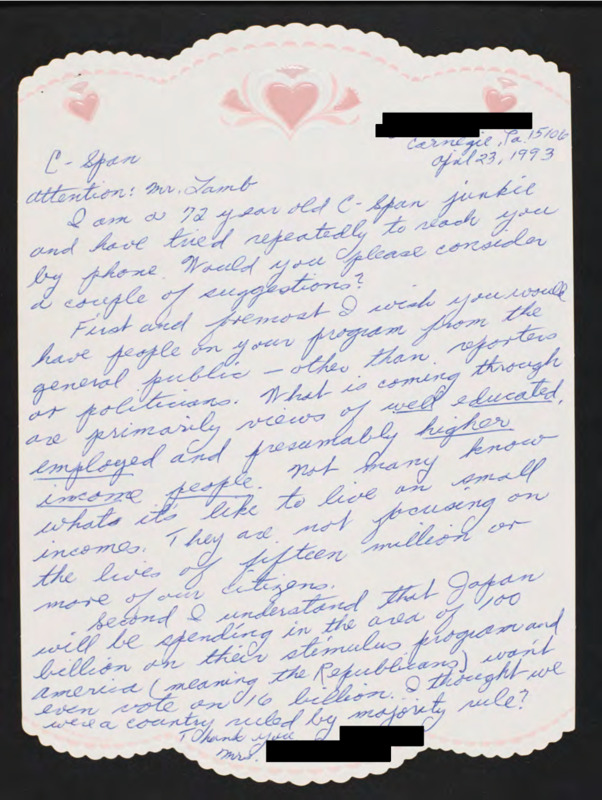 Carnegie, Pa. 15106
April 23, 1993
C-Span
Attention: Mr. Lamb
I am a 72 year old C-Span junkie
and have tried repeatedly to reach you
by phone. Would you please consider
a couple of suggestions?
First and foremost I wish you would
have people on your program from the
general public - other than reporters
or politicians. What is coming through
are primarily views of well educated,
employed and presumably higher
income people. Not many know
whats it's like to live on small
incomes. They are not focusing on
the lives of fifteen million or
more of our citizens.
Second I understand that Japan
will be spending in the area of 100
billion on their stimulus program and
America (meaning the Republicans) won't
even vote on 16 billion. I thought we
were a country ruled by majority rule?
Thank you
Mrs.